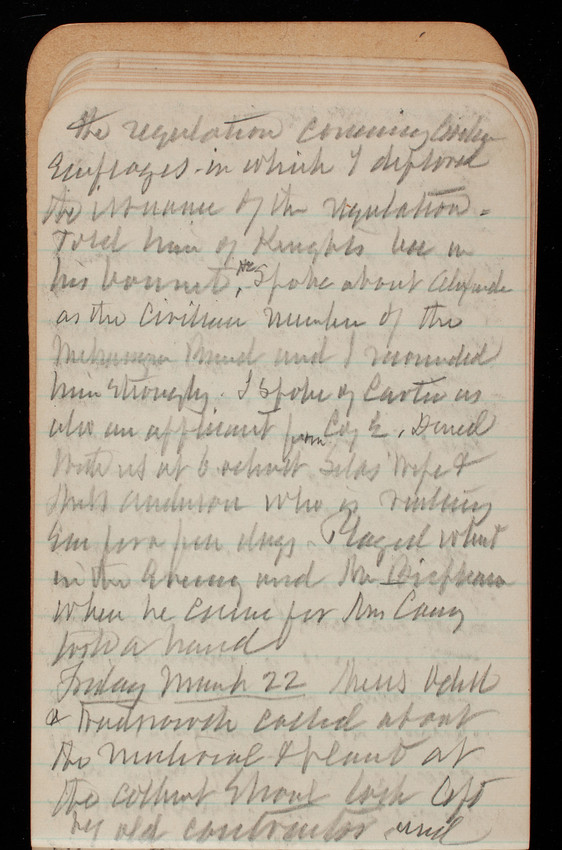 the regulation concerning Civilian
Employes - in which I deplored
the issuance of the regulation -
Told him of Knights bee in
his bonnet, He Spoke about Alexander
as the Civilian member of the
Board and I seconded
him strongly. I spoke of Carter as
also an applicant from Coy E, Dined
with us at 6 oclock Silas Wife &
Miss Anderson who is visiting
Em for a few days - Played whist
in the Evening and Mr
when he came for Mrs Casey
took a hand
Friday March 22 Messrs Odell
& Wadsworth called about
the material & plant at
the Colbert Shoal lock left
by old contractor and